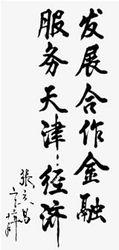 发展合作金融
服务天津经济
张立昌